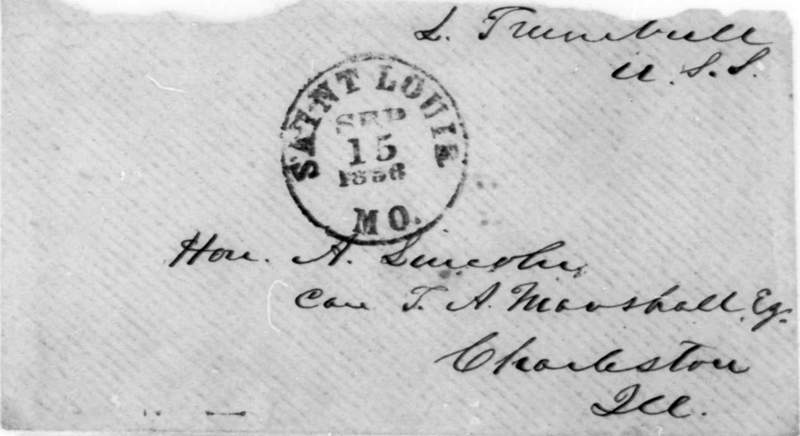 L. Trumbull
U.S.S.
SAINT LOUIS
SEP
15
1856
MO.
Hon. A. Lincoln
Care T. A. Marshall, Eq.
Charleston
Ill.